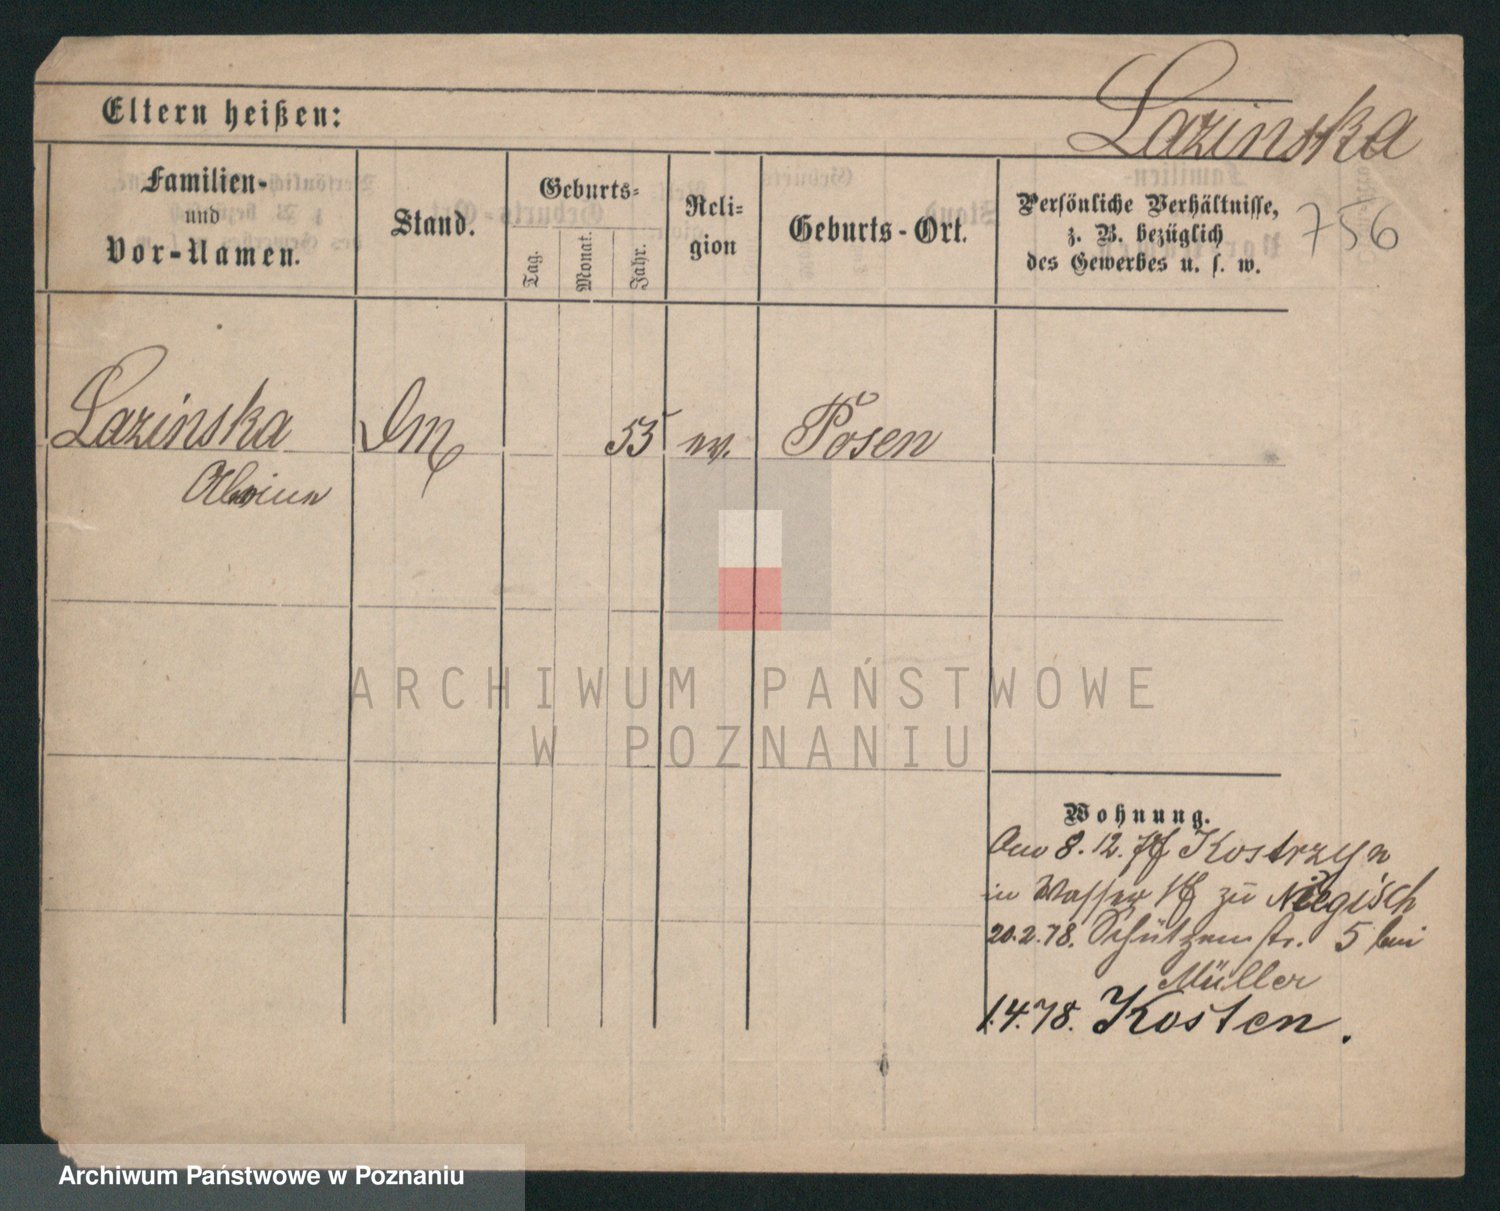 Lazinska
Eltern heißen:
756
Familien-
und
Vor-Namen.
Stand.
Geburts-
Tag.
Monat.
Jahr.
Reli-
gion
Geburts-Ort.
Persönliche Verhältnisse,
z. B. bezüglich
des Gewerbes u. s. w.
Lazinska
53
ev.
Posen
ARCHIWUM PAŃSTWOWE
W POZNANIU
Wohnung.
8. 12. 77 Kostrzyn
in Wasser zu Niegisch
20.2.78. Schützenstr. 5 bei
Müller
1.4.78. Kosten.
Archiwum Państwowe w Poznaniu